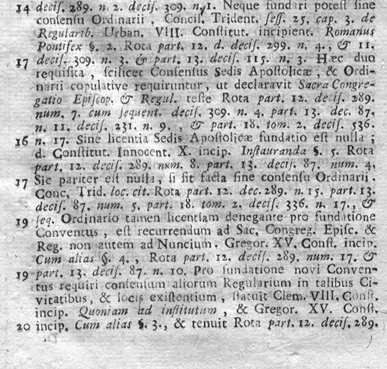 14 decis. 289. n. 2. decis. 309. n. 1. Neque fundari potest sine
consensu Ordinarii, Concil. Trident. sess. 25. cap. 3. de
Regularib. Urban. VIII. Constitut. incipient. Romanus
Pontifex §. 2. Rota part. 12. d. decis. 299. n. 4., & 11.
17 decis. 309. n. 3. & part. 13. decis. 115. n. 3. Hæc duo
requisita, scilicet Consensus Sedis Apostolicæ, & Ordi-
narii copulative requiruntur, ut declaravit Sacra Congre-
gatio Episcop. & Regul. teste Rota part. 12. decis. 289.
num. 7. cum sequent. decis. 309. n. 4. part. 13. dec. 87.
n. 11. decis. 231. n. 9., & part. 18. tom. 2. decis. 536.
16 n. 17. Sine licentia Sedis Apostolicæ fundatio est nulla;
d. Constitut. Innocent. X. incip. Instauranda §. 5. Rota
part. 12. decis. 289. num. 8. part. 13. decis. 87. num. 4.
17 Sic pariter est nulla, si sit facta sine consensu Ordinarii.
Conc. Trid. loc. cit. Rota part. 12. dec. 289. n. 15. part. 13.
decis. 87. num. 5. part. 18. tom. 2. decis. 336. n. 17., &
19 seq. Ordinario tamen licentiam denegante pro fundatione
Conventus, est recurrendum ad Sac. Congreg. Episc. &
Reg. non autem ad Nuncium. Gregor. XV. Const. incip.
Cum alias §. 4., Rota part. 12. decis. 289. num. 17. &
19 part. 13. decis. 87. n. 10. Pro fundatione novi Conven-
tus requiri consensum aliorum Regularium in talibus Ci-
vitatibus, & locis existentium, statuit Clem. VIII. Const.
incip. Quoniam ad institutum, & Gregor. XV. Const.
20 incip. Cum alias §. 3., & tenuit Rota part. 12. decis. 289.